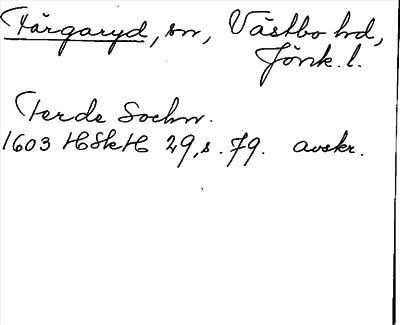 Färgaryd, sn, Västbo hd,
Jönk. l.
Ferde Sochn.
1603 HSkH 29, s. 79. avskr.